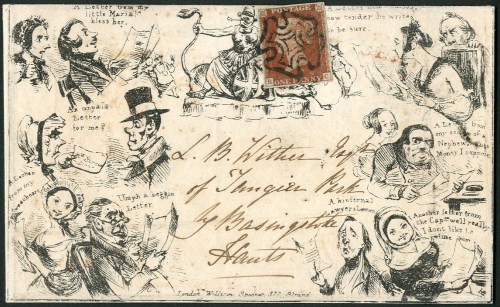 A Letter from my
little Maria!
bless her.
how tender he writes
to be sure.
POSTAGE
ONE PENNY
An unpaid
Letter
for me?
A Letter
from my
Nephew
Money I suppose
A Letter
from my
Sweetheart
Umph a begging
Letter
L. B. Wither Esqr
of Tangier Park
by Basingstoke
Hants
A infernal
Lawyers
Another letter from
the Capn well really
I dont like to
London William Spooner 377, Strand